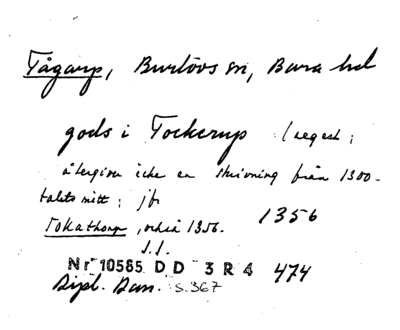 Tågarp, Burlövs sn, Bara hd
gods i Tockerup (regest;
återgiver icke en skrivning från 1300-
talets mitt; jfr
Tokathorp, också 1356.
1356
s.s.
Nr 10585 DD 3 R 4 474
Dipl. Dan. s. 367